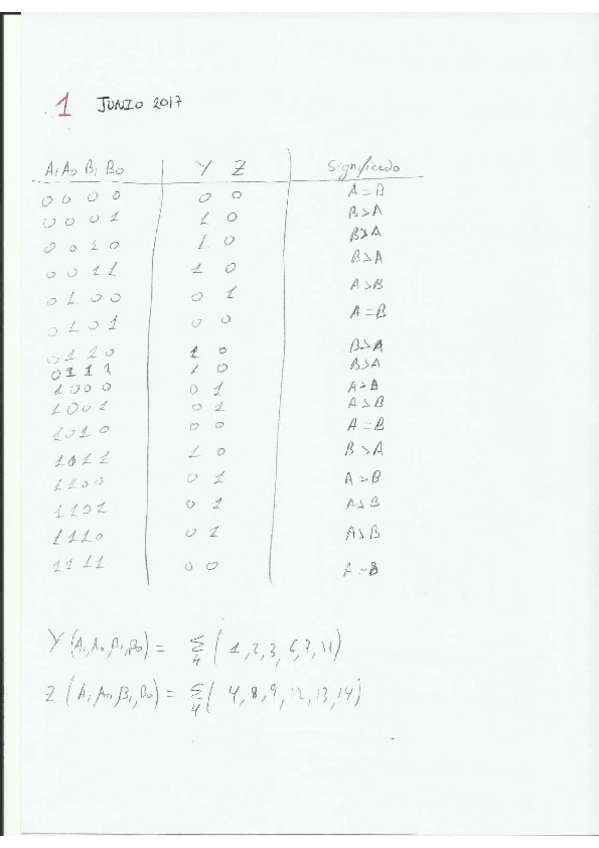 1 JUNIO 2017
A₁ A₀ B₁ B₀ | Y Z | Significado
0 0 0 0 | 0 0 | A = B
0 0 0 1 | 1 0 | B > A
0 0 1 0 | 1 0 | B > A
0 0 1 1 | 1 0 | B > A
0 1 0 0 | 0 1 | A > B
0 1 0 1 | 0 0 | A = B
0 1 1 0 | 1 0 | B > A
0 1 1 1 | 1 0 | B > A
1 0 0 0 | 0 1 | A > B
1 0 0 1 | 0 1 | A > B
1 0 1 0 | 0 0 | A = B
1 0 1 1 | 1 0 | B > A
1 1 0 0 | 0 1 | A > B
1 1 0 1 | 0 1 | A > B
1 1 1 0 | 0 1 | A > B
1 1 1 1 | 0 0 | A = B
Y (A₁, A₀, B₁, B₀) = Σ₄ (1, 2, 3, 6, 7, 11)
Z (A₁, A₀, B₁, B₀) = Σ₄ (4, 8, 9, 12, 13, 14)